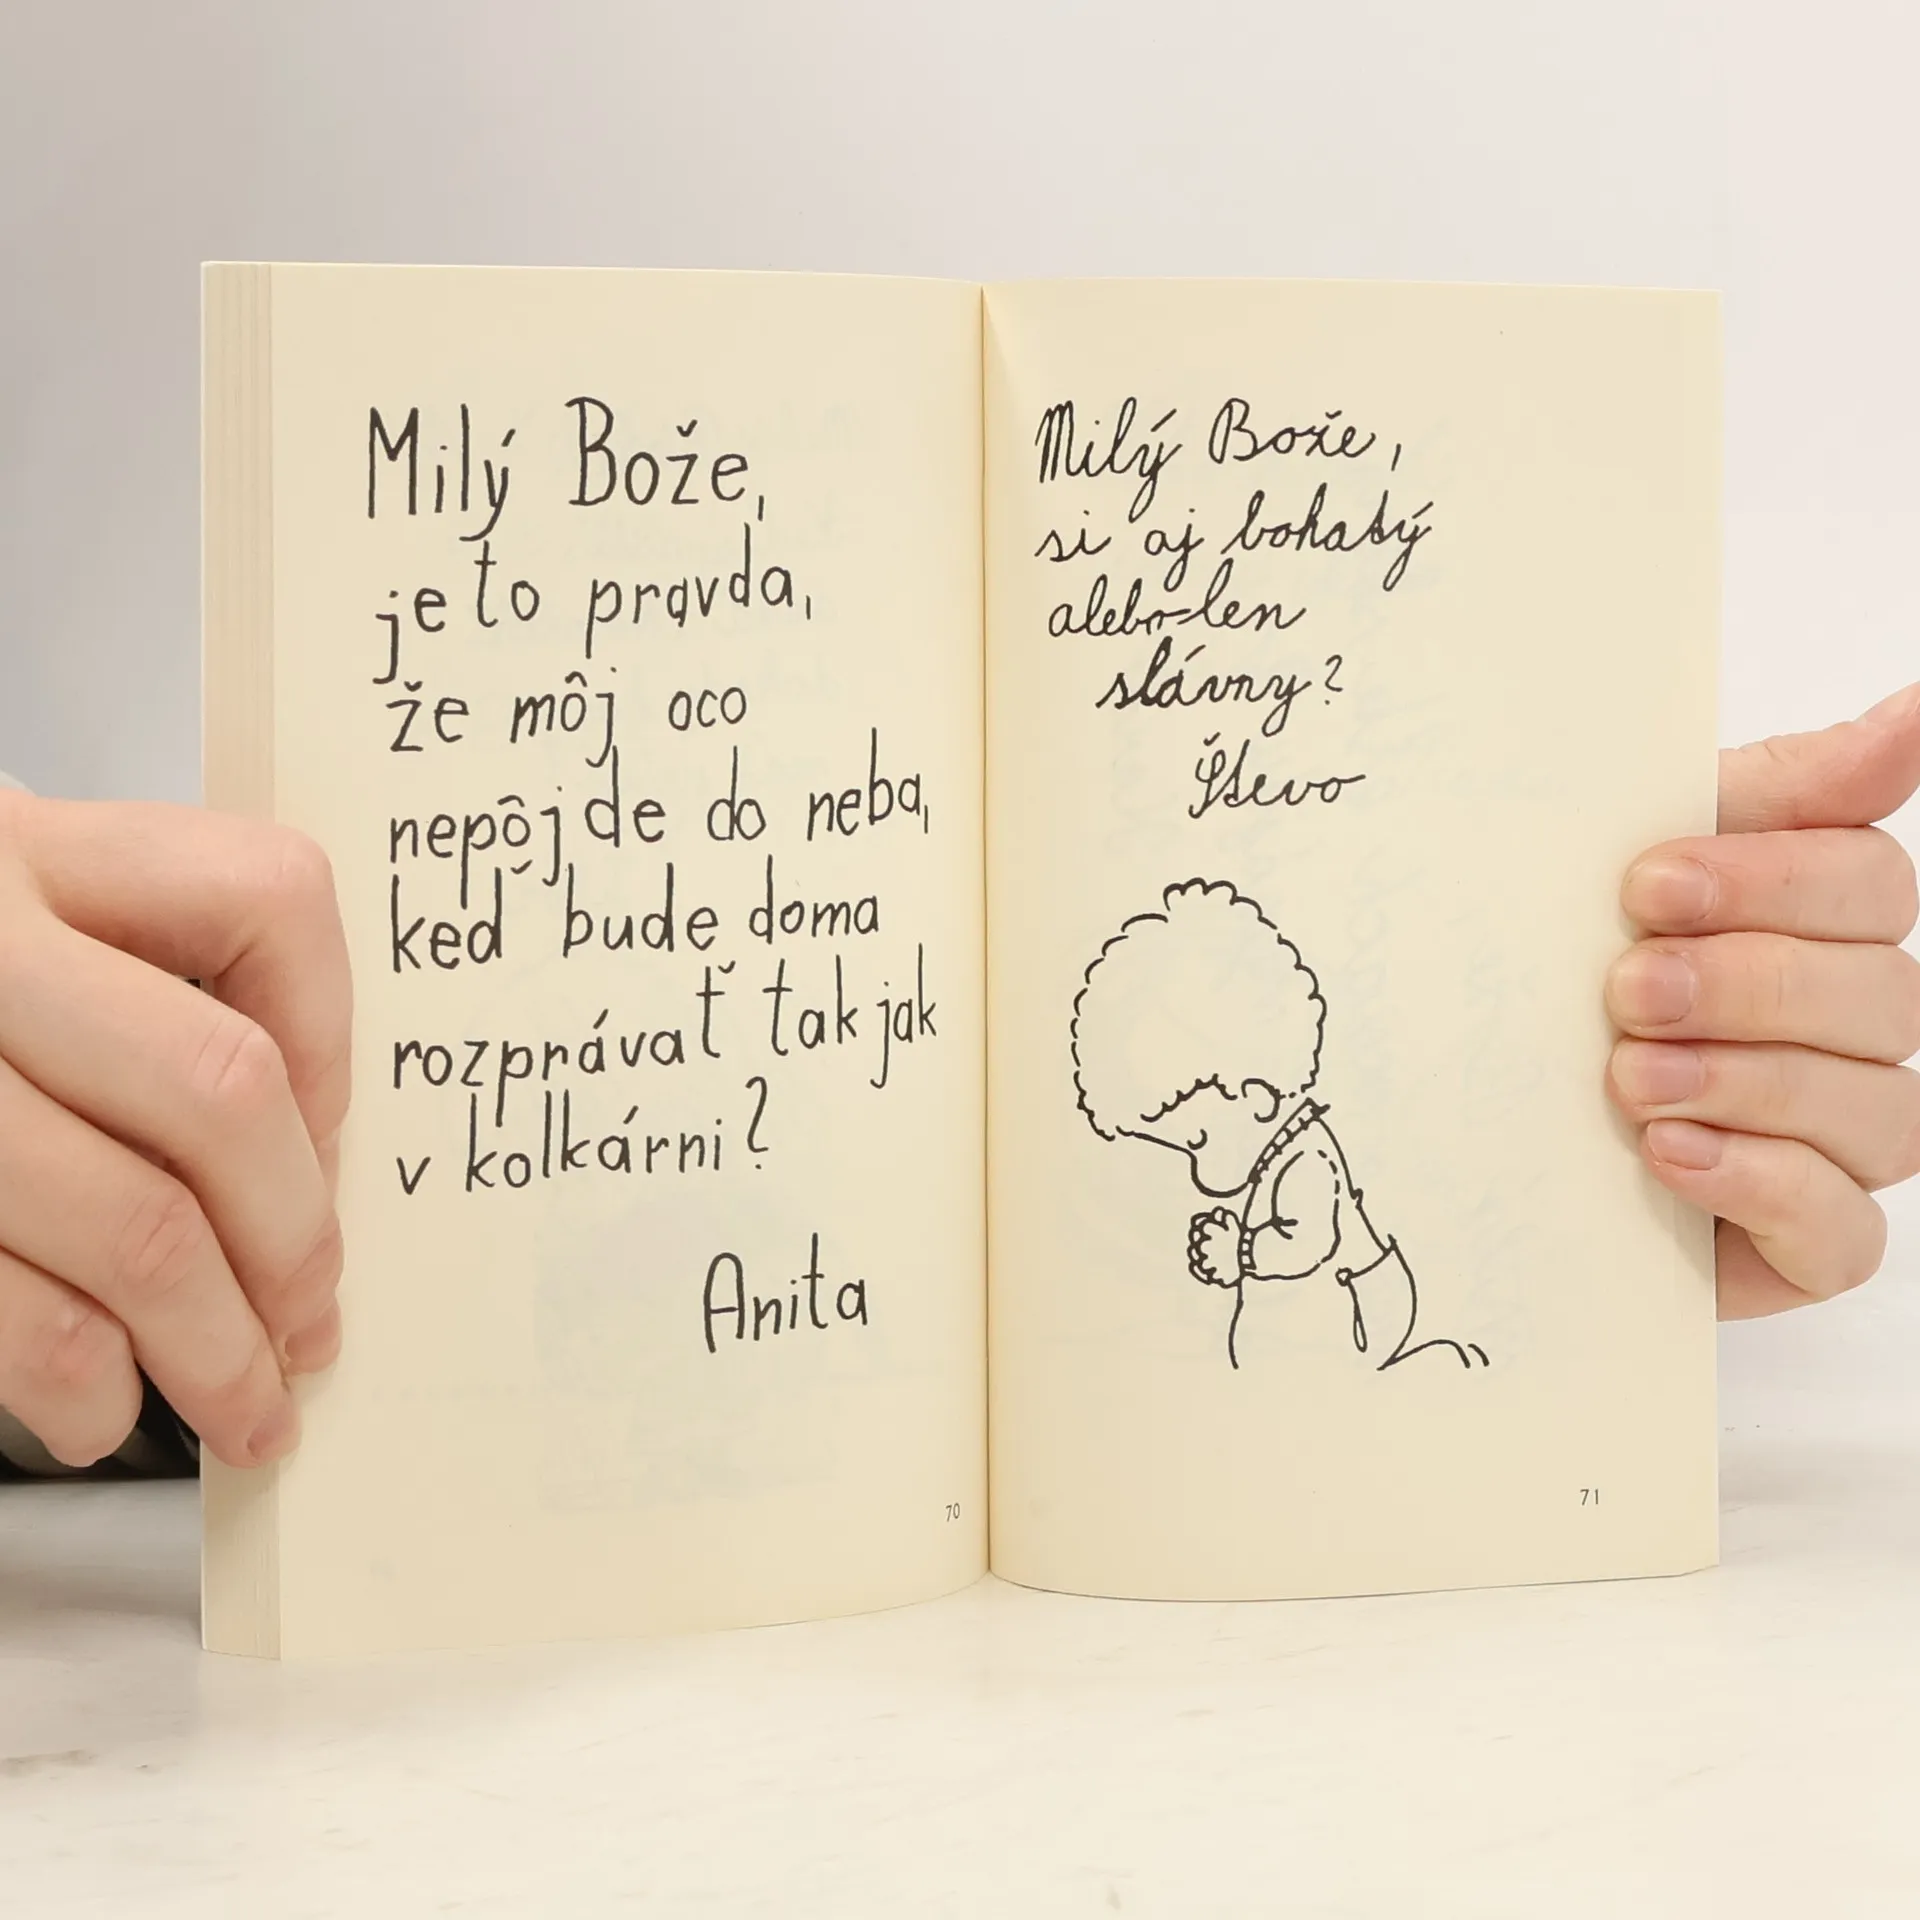 Milý Bože,
je to pravda,
že môj oco
nepôjde do neba,
keď bude doma
rozprávať tak jak
v kolkárni?
Anita
70
Milý Bože,
si aj bohatý
alebo len
slávny?
Števo
71